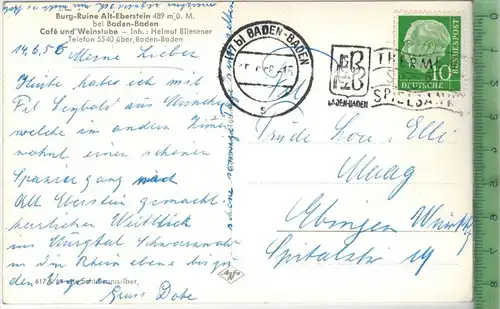 Burg-Ruine Alt-Eberstein 489 m ü. M.
bei Baden-Baden
Café und Weinstube – Inh.: Helmut Bliesener
Telefon 5540 über Baden-Baden
14.6.56
Meine Lieben
Heute habe ich mit
Frl. Seybold aus München
welche im andern Zimmer
wohnt einen schönen
Spaziergang nach
Alt Eberstein gemacht.
herrlichen Weitblick
ins Murgtal Schwarzwald
in die Rhein ebene bis zu
den Vogesen
Gruss Dote
BADEN-BADEN
BADEN-BADEN
THERMAL
SPIELBANK
DEUTSCHE BUNDESPOST
10
Maag
Ebingen Württbg
Spitalstr 19